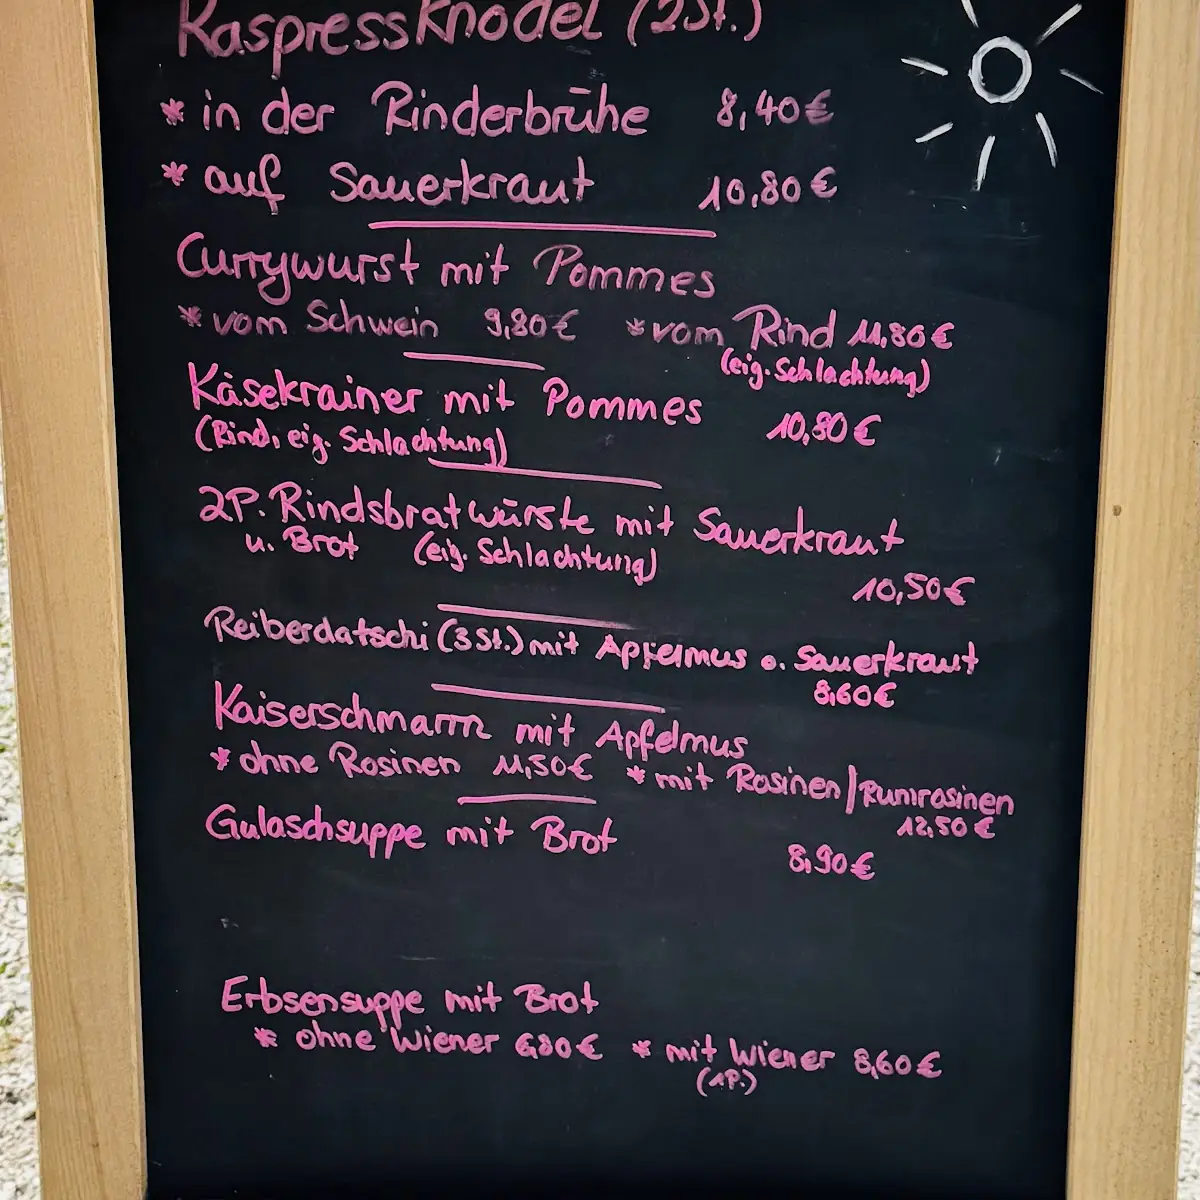 Kaspressknödel (2St.)
* in der Rinderbrühe 8,40€
* auf Sauerkraut 10,80€
Currywurst mit Pommes
* vom Schwein 9,80€ * vom Rind 11,80€
(eig. Schlachtung)
Käsekrainer mit Pommes 10,80€
(Rind, eig. Schlachtung)
2P. Rindsbratwürste mit Sauerkraut
u. Brot (eig. Schlachtung)
10,50€
Reiberdatschi (3St.) mit Apfelmus o. Sauerkraut
8,60€
Kaiserschmarrn mit Apfelmus
* ohne Rosinen 11,50€ * mit Rosinen/Rumrosinen
12,50€
Gulaschsuppe mit Brot 8,90€
Erbsensuppe mit Brot
* ohne Wiener 6,80€ * mit Wiener 8,60€
(1P.)